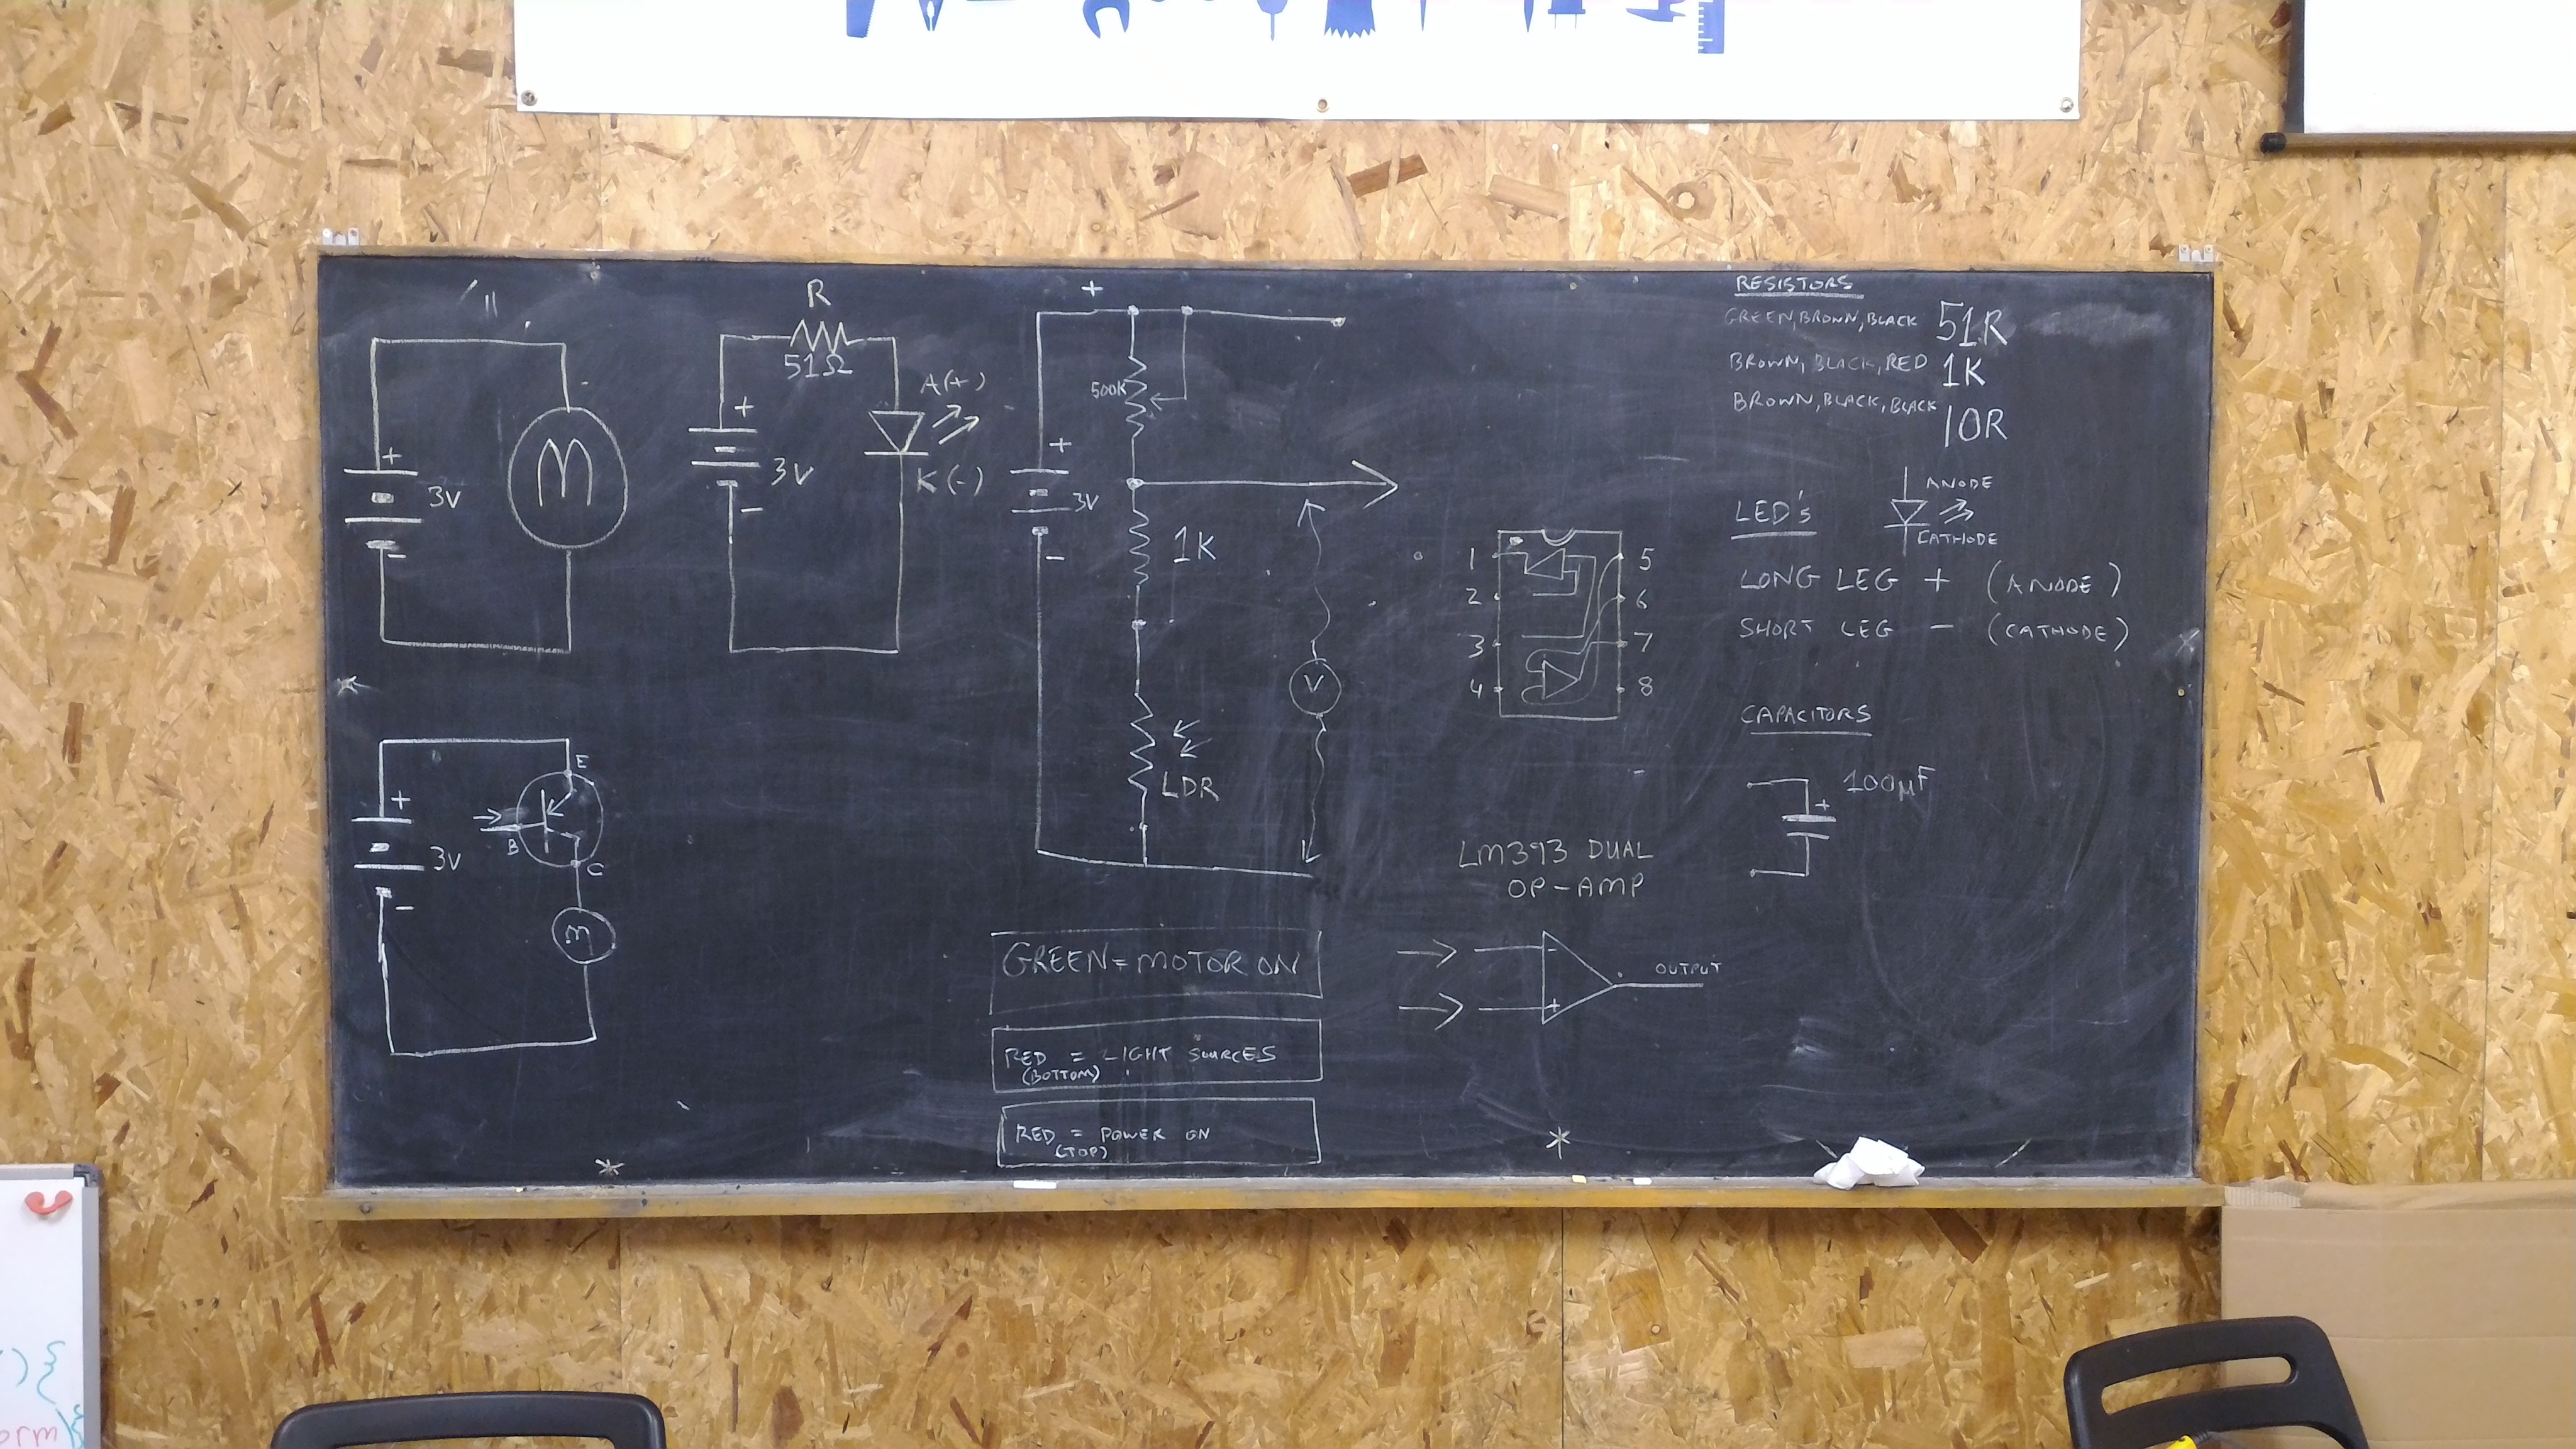 M
+
3V
-
R
51Ω
+
3V
-
A(+)
K(-)
+
3V
-
E
B
C
M
+
+
3V
-
500K
1K
LDR
V
GREEN = MOTOR ON
RED = LIGHT SOURCES
(BOTTOM)
RED = POWER ON
(TOP)
1
2
3
4
5
6
7
8
LM393 DUAL
OP-AMP
-
+
OUTPUT
RESISTORS
GREEN, BROWN, BLACK 51R
BROWN, BLACK, RED 1K
BROWN, BLACK, BLACK 10R
LED's
ANODE
CATHODE
LONG LEG + (ANODE)
SHORT LEG - (CATHODE)
CAPACITORS
100µF
+
){